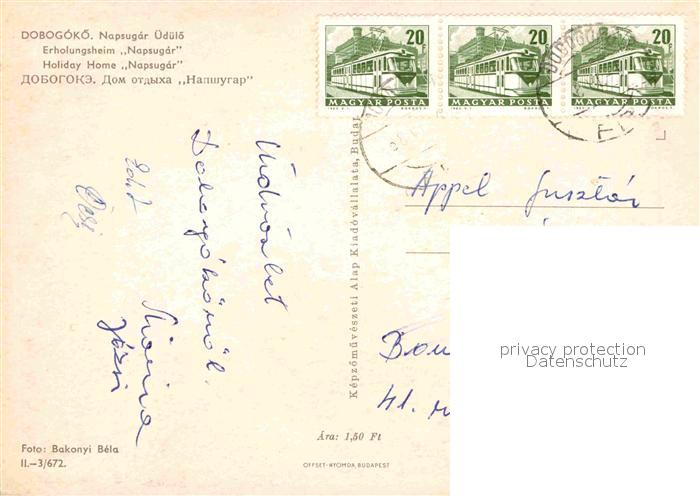 DOBOGÓKŐ. Napsugár Üdülő
Erholungsheim „Napsugár"
Holiday Home „Napsugár"
ДОБОГОКЭ. Дом отдыха „Напшугар"
20
MAGYAR POSTA
20
MAGYAR POSTA
20
MAGYAR POSTA
Üdvözlet
Dobogókőről.
Mária
Józsi
Zoli
Képzőművészeti Alap Kiadóvállalata, Budap
Appel Gusztáv
41.
privacy protection
Datenschutz
Foto: Bakonyi Béla
II.—3/672.
Ára: 1,50 Ft
OFFSET-NYOMDA, BUDAPEST